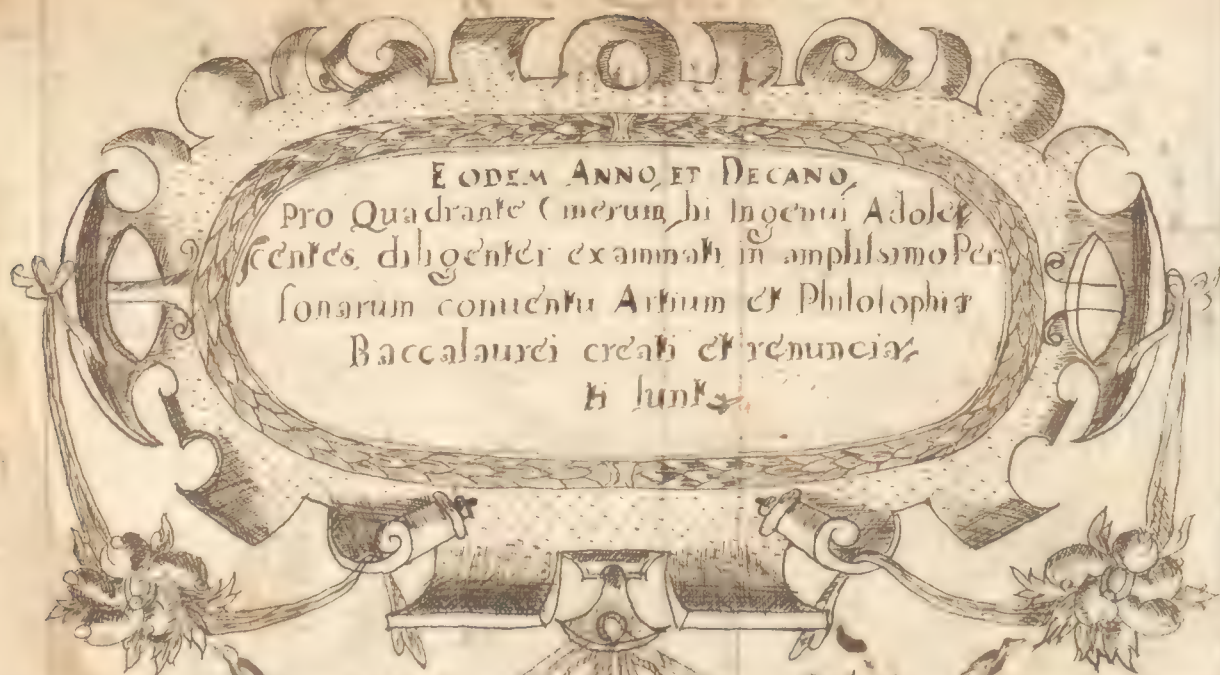 EODEM ANNO, ET DECANO,
Pro Quadrante Cinerum, hi Ingenui Adoleſ
ſcentes, diligenter examinati, in ampliſsimo Per
ſonarum conuentu Artium et Philoſophiæ
Baccalaurei creati et renuncia,
ti ſunt.